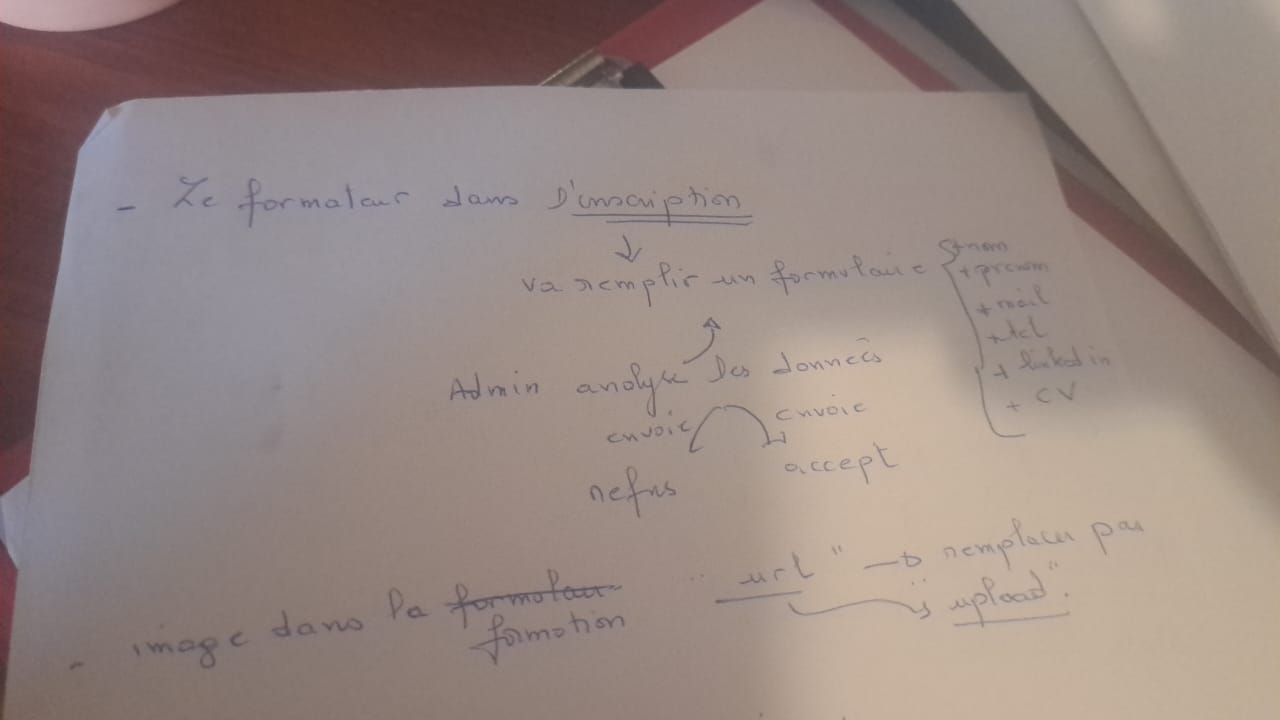 - Le formateur dans l'inscription
↓
va remplir un formulaire { + nom
+ prenom
+ mail
+ tel
+ linked in
+ CV
Admin analyse les données
envoie envoie
refus accept
- image dans la formation "url" → remplacer par
"upload".